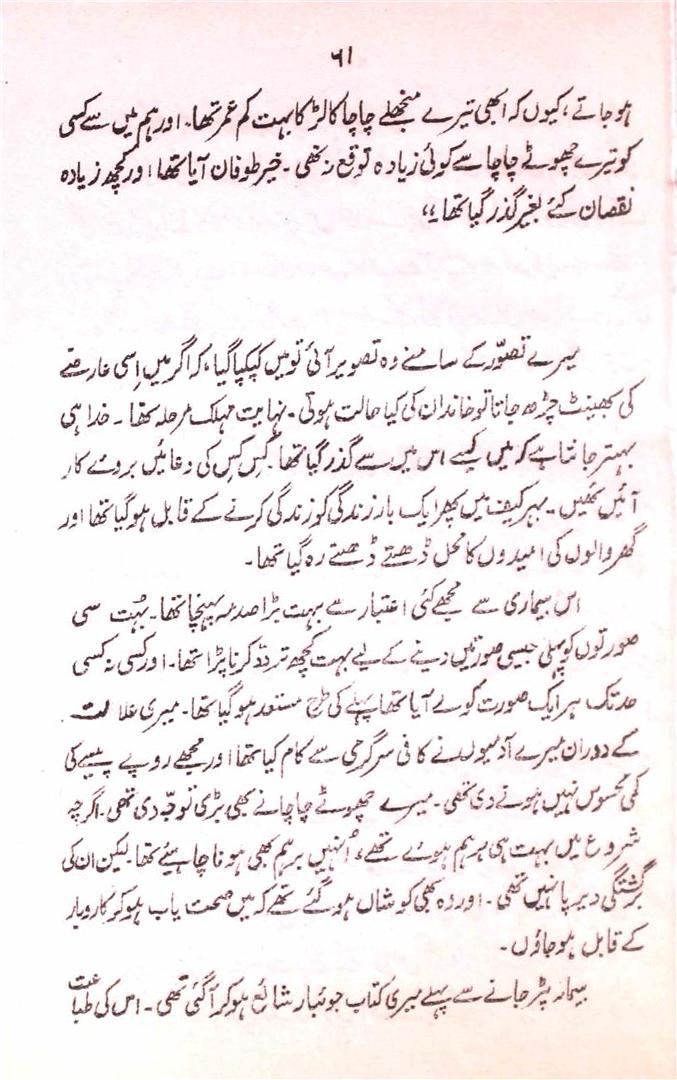 ۶۱
ہو جاتے، کیوں کہ ابھی تیرے منجھلے چاچا کا لڑکا بہت کم عمر تھا۔ اور ہم میں سے کسی
کو تیرے چھوٹے چاچا سے کوئی زیادہ توقع نہ تھی۔ خیر طوفان آیا تھا اور کچھ زیادہ
نقصان کئے بغیر گذر گیا تھا۔“
میرے تصوّر کے سامنے وہ تصویر آئی تو میں کپکپا گیا، کہ اگر میں اِسی عارضے
کی بھینٹ چڑھ جاتا تو خاندان کی کیا حالت ہوتی۔ نہایت مہلک مرحلہ تھا۔ خدا ہی
بہتر جانتا ہے کہ میں کیسے اس میں سے گذر گیا تھا۔ کِس کِس کی دعائیں بروئے کار
آئیں تھیں۔ بہر کیف میں پھر ایک بار زندگی کو زندگی کرنے کے قابل ہو گیا تھا اور
گھر والوں کی امیدوں کا محل ڈھتے ڈھتے رہ گیا تھا۔
اس بیماری سے مجھے کئی اعتبار سے بہت بڑا صدمہ پہنچا تھا۔ بہُت سی
صورتوں کو پہلی جیسی صورتیں دینے کے لیے بہت کچھ تردّد کرنا پڑا تھا۔ اور کسی نہ کسی
حد تک ہر ایک صورت کو لے آیا تھا پہلے کی طرح مستعد ہو گیا تھا۔ میری علالت
کے دوران میرے آدمیوں نے کافی سرگرمی سے کام کیا تھا اور مجھے روپے پیسے کی
کمی محسوس نہیں ہونے دی تھی۔ میرے چھوٹے چاچا نے بھی بڑی توجّہ دی تھی۔ اگرچہ
شروع میں بہت ہی برہم ہوئے تھے، اُنہیں برہم بھی ہونا چاہیئے تھا۔ لیکن ان کی
برگشتگی دیرپا نہیں تھی۔ اور وہ بھی کوشاں ہو گئے تھے کہ میں صحت یاب ہو کر کاروبار
کے قابل ہو جاؤں۔
بیمار پڑ جانے سے پہلے میری کتاب جوئبار شائع ہو کر آ گئی تھی۔ اس کی طباعت